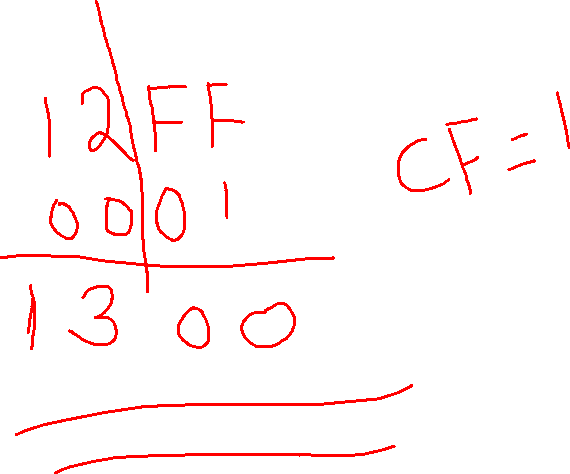 12FF
0001
1300
CF=1